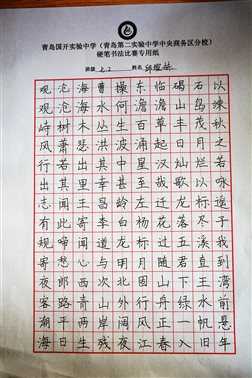 青岛国开实验中学（青岛第二实验中学中央商务区分校）
硬笔书法比赛专用纸
班级 七.2 姓名
观沧海曹操东临碣石以
观沧海水何澹澹山岛竦
峙树木丛生百草丰茂秋
风萧瑟洪波涌起日月之
行若出其中星汉灿烂若
出其里幸甚至哉歌以咏
志闻王昌龄左迁龙标遥
有此寄李白杨花落尽子
规啼闻道龙标过五溪我
寄愁心与明月随君直到
夜郎西次北固山下王湾
客路青山外行舟绿水前
潮平两岸阔风正一帆悬
海日生残夜江春入旧年